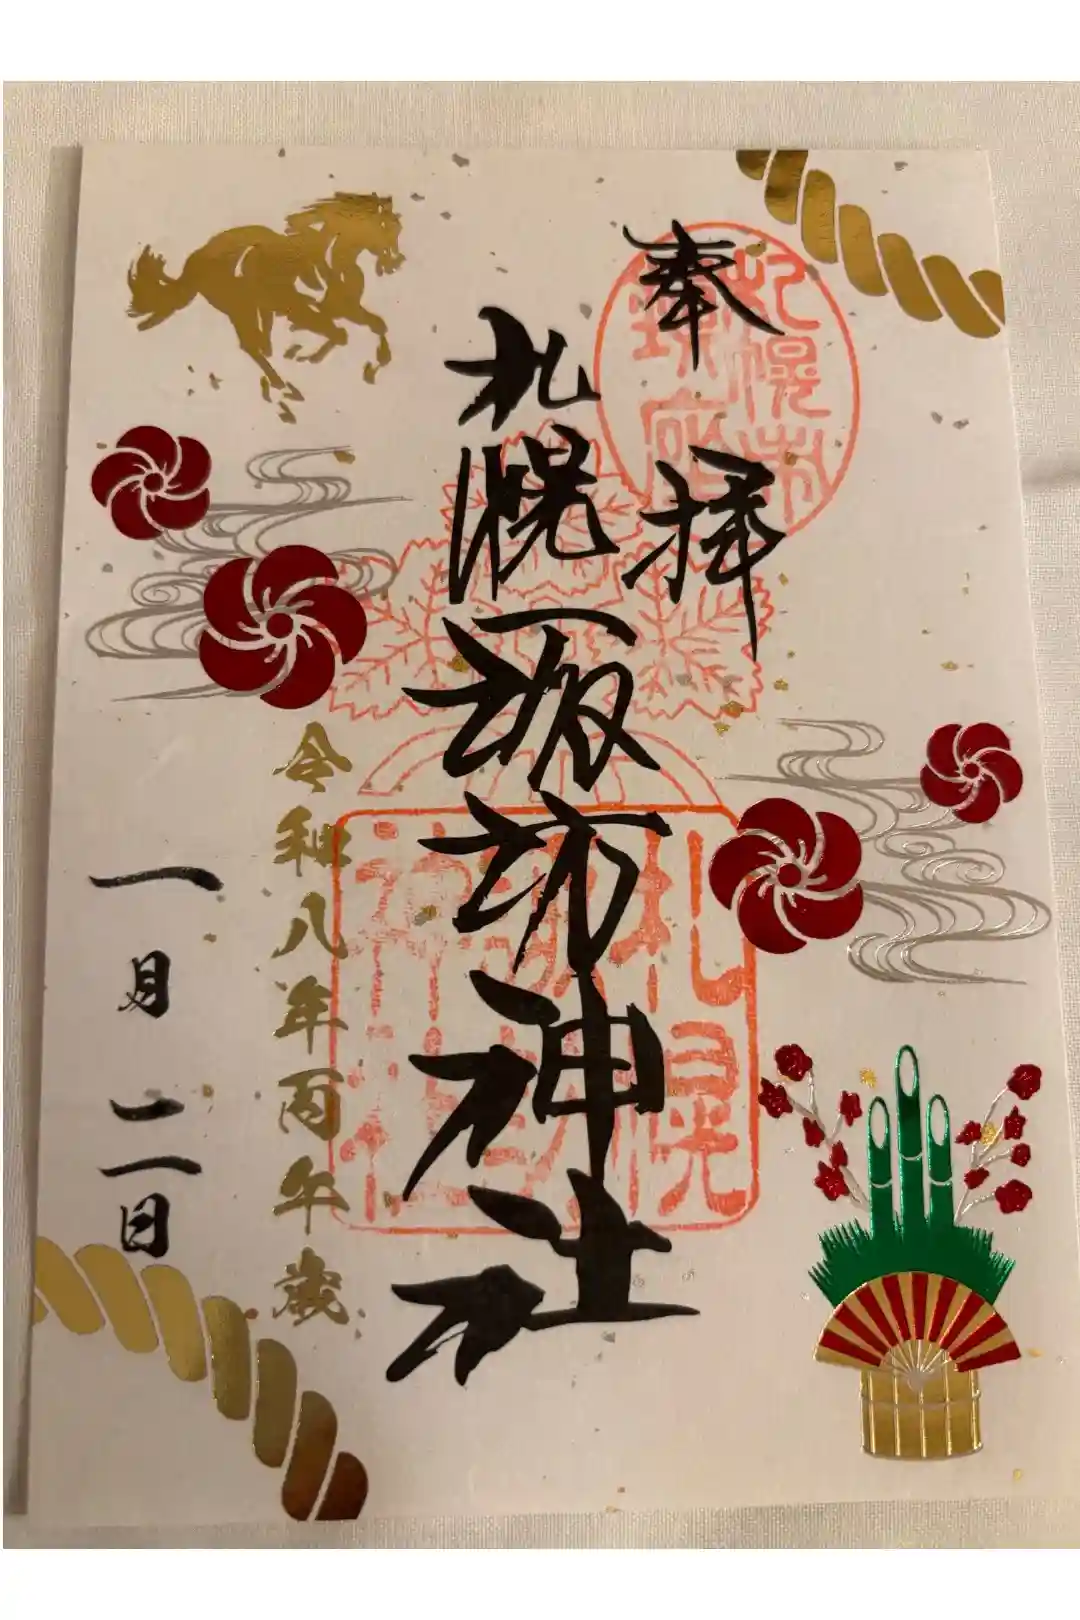 奉拝
札幌諏訪神社
令和八年丙午歳
一月二日
札幌市
鎮座
札幌
諏訪
神社